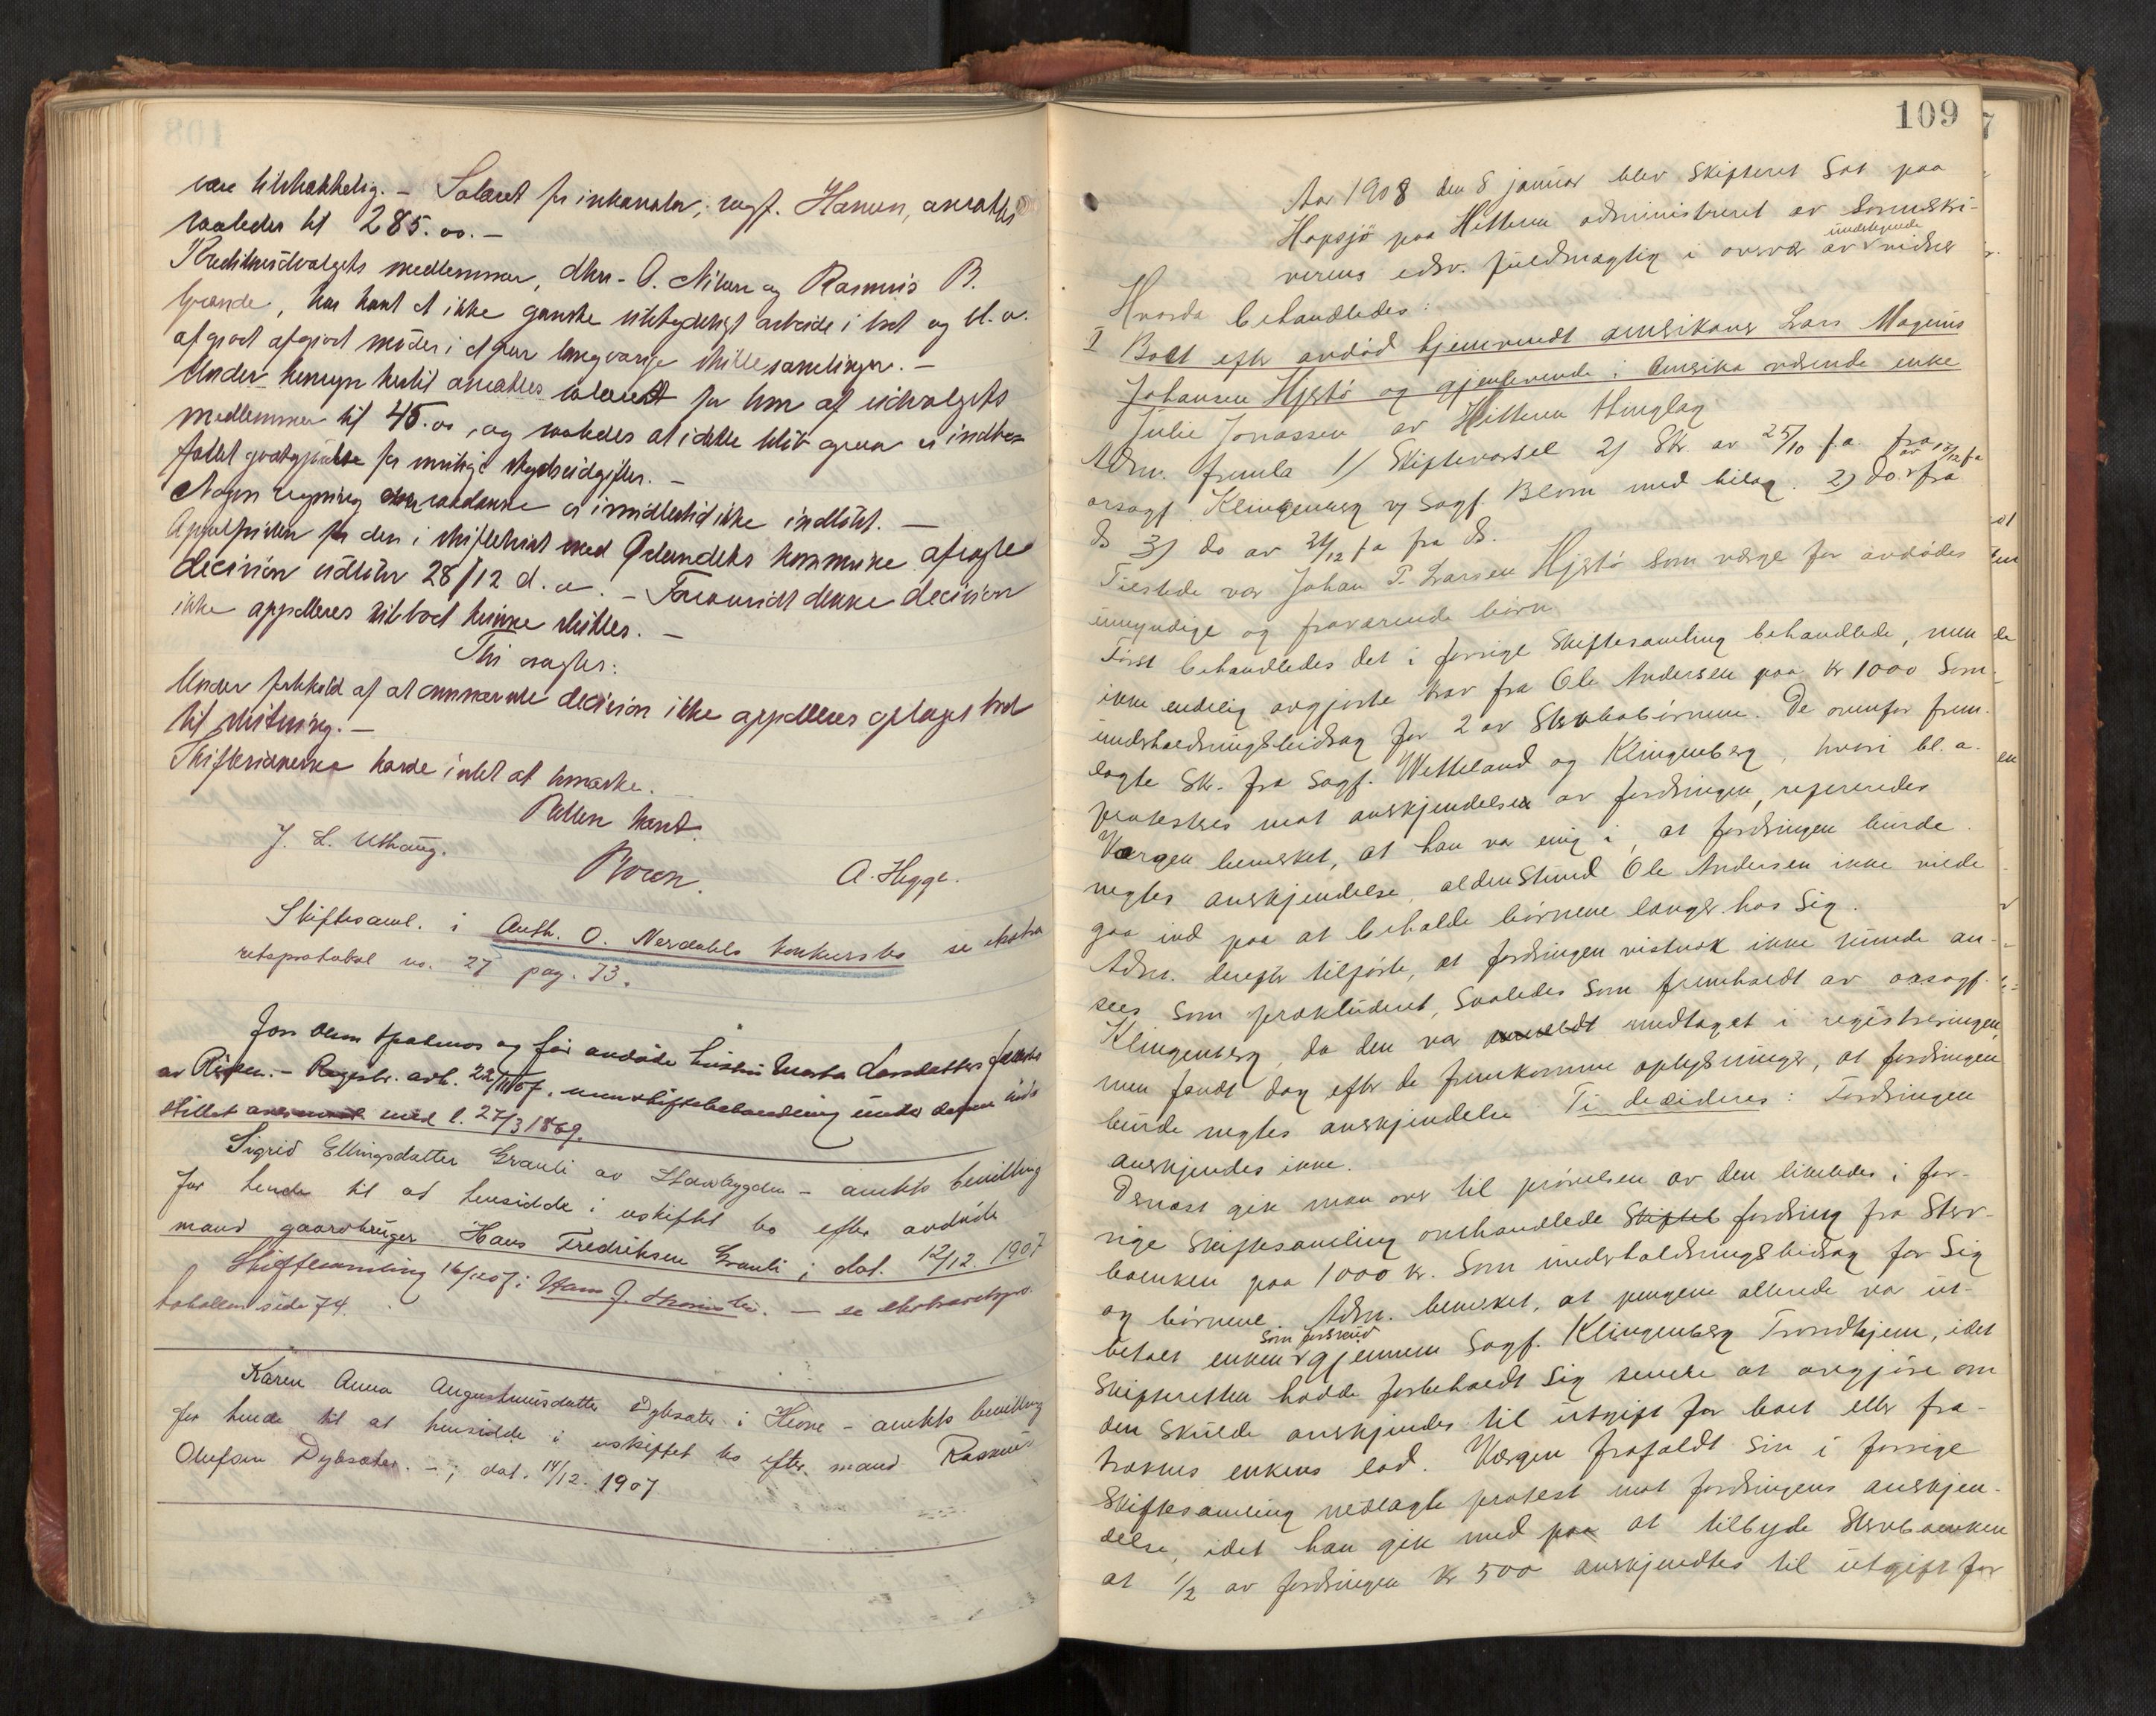 være tilstrækkelig. – Salæret for inkassator, sagf. Hansen, ansættes
saaledes til 285.00.–
Kreditorudvalgets medlemmer, dhrr. O. Nilsen og Rasmus B.
Grande, har havt et ikke ganske ubetydeligt arbeide i boet og bl. a.
afgivet møder i et par langvarige skiftesamlinger.–
Under hensyn hertil ansættes salæret for hver af udvalgets
medlemmer til 45.00, og saaledes at i dette beløb ogsaa er indbe-
fattet godtgjørelse for mulige skydsudgifter.–
Nogen regning saadanne er imidlertid ikke indløbet.–
Appelfristen for den i skifteretten med Ørlandets kommune afsagte
decision udløber 28/12 d. a. – Forsaavidt denne decision
ikke appelleres vil boet kunne sluttes.–
Thi sagtes:
Under forbehold af at ommeldte decision ikke appelleres optages boet
til slutning.–
Skiftevidnerne havde intet at bemærke.–
Retten hævet.
J. L. Uthaug. A. Hegge.
Skiftesaml. i Anth. O. Nerdahls konkursbo se ekstra
retsprotokol no. 27 pag. 73.
Jon Olsen og før avdøde hustru Marta Larsdatters fællesbo
av Rissen.– Registr. avh. 22/11 1907, men skiftebehandling under
stillet med l. 27/3 1869.
Sigrid Ellingsdatter Grauli av Stadsbygden – amtets bevilling
for hende til at hensidde i uskiftet bo efter avdøde
mand gaardbruger Hans Fredriksen Grauli; dat. 12/12. 1907
Skiftesamling 16/12 07 i Hans J. – se ekstraretspro-
tokollen side 74.
Karen Anna Augustinusdatter Dybsæter i Hevne – amtets bevilling
for hende til at hensidde i uskiftet bo efter mand Rasmus
Olufsen Dybsæter. –; dat. 14/12. 1907
109
Aar 1908 den 8 januar blev skifteret sat paa
Hopsjø paa Hitteren administreret av sorenskri-
verens edsv. fuldmægtig i overvær av undertegnede vidner
Hvorda behandledes:
I Boet efter avdød hjemvendt amerikaner Lars Magnus
Johansen Hjertø og gjenlevende i Amerika værende enke
Julie Jonassen av Hitteren thinglag
Adm. fremla 1) Skiftevarsel 2) Skr. av 25/10 f.a. fra
orsagf. Klingenberg v/ sagf. Blom med bilag. 2) do. av 17/12 f.a fra
ds 3) do av 24/12 f.a fra ds.
Tilstede var Johan P. Larsen Hjertø som værge for avdødes
umyndige og fraværende børn
Først behandledes det i forrige skiftesamling behandlede, men
ikke endelig avgjorte krav fra Ole Andersen paa kr 1000 som
underholdningsbidrag for 2 av stervbobørnene. De ovenfor frem-
lagte skr. fra sagf. Wetteland og Klingenberg, hvori bl. a.
protesteres mot anerkjendelsen av fordringen, refereredes
Værgen bemerket, at han va enig i, at fordringen burde
negtes anerkjendelse, aldenstund Ole Andersen ikke vilde
gaa ind paa at beholde børnene længer hos sig.
Adm. derefter tilførte, at fordringen vistnok ikke kunde an-
sees som prækluderet, saaledes som fremholdt av orsagf.
Klingenberg, da den var anmeldt medtaget i registreringen,
men fandt dog efter de fremkomne oplysninger, at fordringen
burde negtes anerkjendelse Ti decideres: Fordringen
anerkjendes ikke.
Dernæst gik man over til prøvelsen av den likeledes i for-
rige skiftesamling omhandlede Skiftet fordring fra Sterv-
boenken paa 1000 kr. som underholdningsbidrag for sig
og børnene. Adm. bemerket, at pengene allerede va ut-
betalt enken som forskud gjennem sagf. Klingenberg Trondhjem, idet
Skifteretten hadde forbeholdt sig senere at avgjøre om
den skulde anerkjendes til utgift for boet eller fra-
trækkes enkens lod. Værgen frafaldt sin i forrige
Skiftesamling nedlagte protest mot fordringens anerkjen-
delse, idet han gik med paa at tilbyde Stervboenken
at 1/2 av fordringen kr 500 anerkjendtes til utgift for